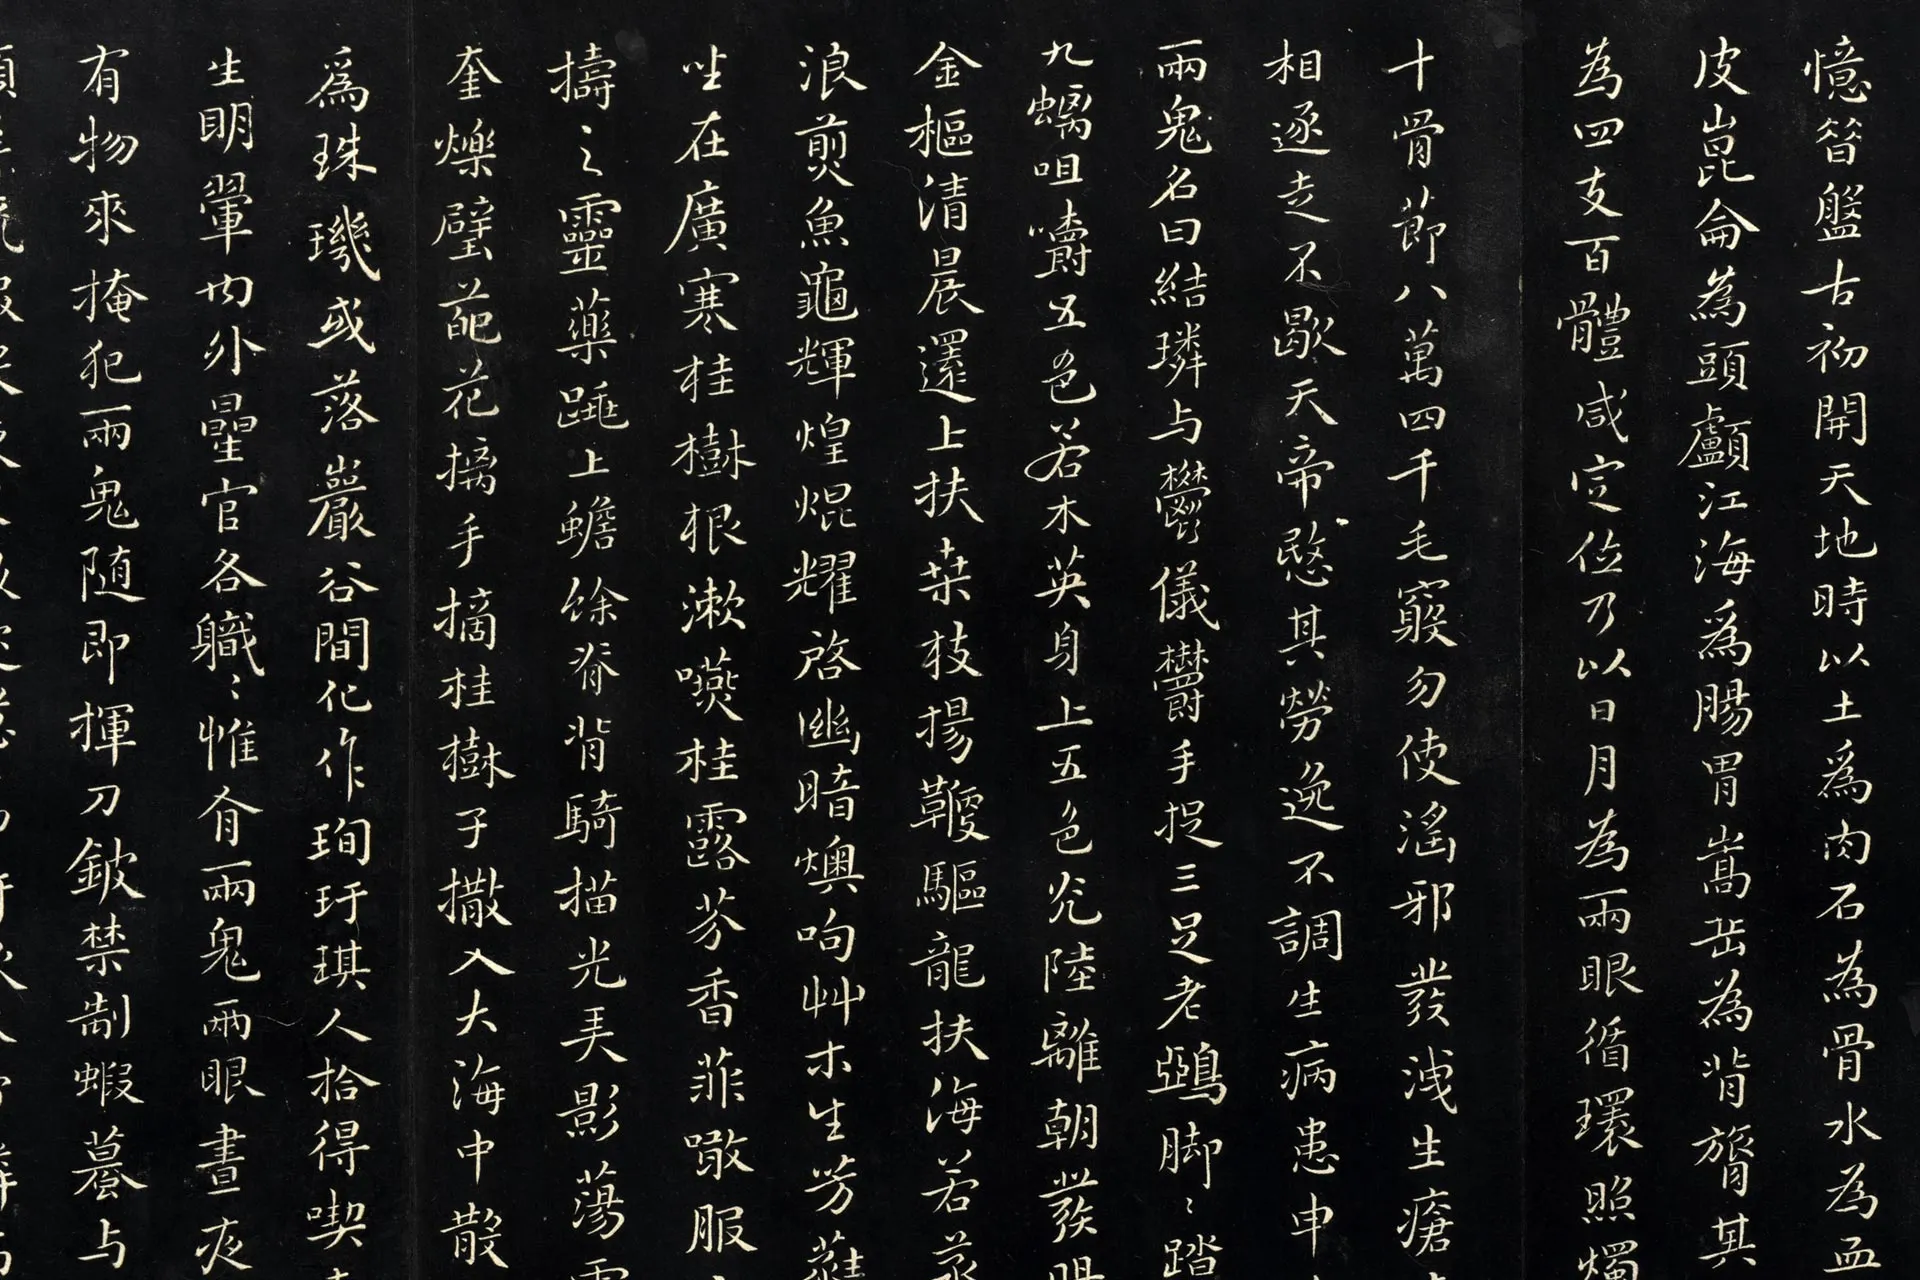 憶昝盤古初開天地時以土為肉石為骨水為血
皮崑侖為頭顱江海為腸胃嵩岳為背膂其
為四支百體咸定位乃以日月為兩眼循環照燭
十骨節八萬四千毛竅勿使淫邪發洩生瘡
相逐走不歇天帝愍其勞逸不調生病患申
兩鬼名曰結璘与鬱儀鬱手捉三足老鵶脚〻踏
九螭咀嚼五色若木英身上五色光陸離朝發暘
金樞清晨還上扶桒枝揚鞭驅龍扶海若蒸
浪煎魚龜輝煌焜耀啓幽暗燠呴艸木生芳蕤
坐在廣寒桂樹根漱嚥桂露芬香菲噉服
擣之靈藥踏上蟾蜍脊背騎描光弄影蕩雲
奎爍壁葩花摛手摘桂樹子撒入大海中散
為珠璣或落巖谷間化作珣玗琪人拾得喫
生明翬内外星官各職〻惟有兩鬼兩眼晝夜
有物來掩犯兩鬼随即揮刀鈹禁制蝦蟇与